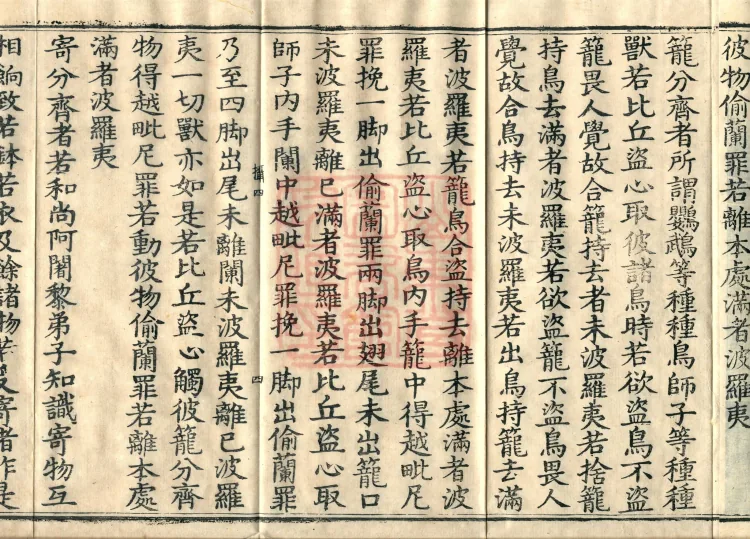 彼物偷蘭罪若離本處滿者波羅夷
籠分齊者所謂鸚鵡等種種鳥師子等種種
獸若比丘盜心取彼諸鳥時若欲盜鳥不盜
籠畏人覺故合籠持去者未波羅夷若捨籠
持鳥去滿者波羅夷若欲盜籠不盜鳥畏人
覺故合鳥持去未波羅夷若出鳥持籠去滿
者波羅夷若籠鳥合盜持去離本處滿者波
羅夷若比丘盜心取鳥內手籠中得越毗尼
罪挽一脚出偷蘭罪兩脚出翅尾未出籠口
未波羅夷離已滿者波羅夷若比丘盜心取
師子內手闌中越毗尼罪挽一脚出偷蘭罪
攝四 四
乃至四脚出尾未離闌未波羅夷離已波羅
夷一切獸亦如是若比丘盜心觸彼籠分齊
物得越毗尼罪若動彼物偷蘭罪若離本處
滿者波羅夷
寄分齊者若和尚阿闍黎弟子知識寄物互
相餉致若鉢若衣及餘諸物寄者作是